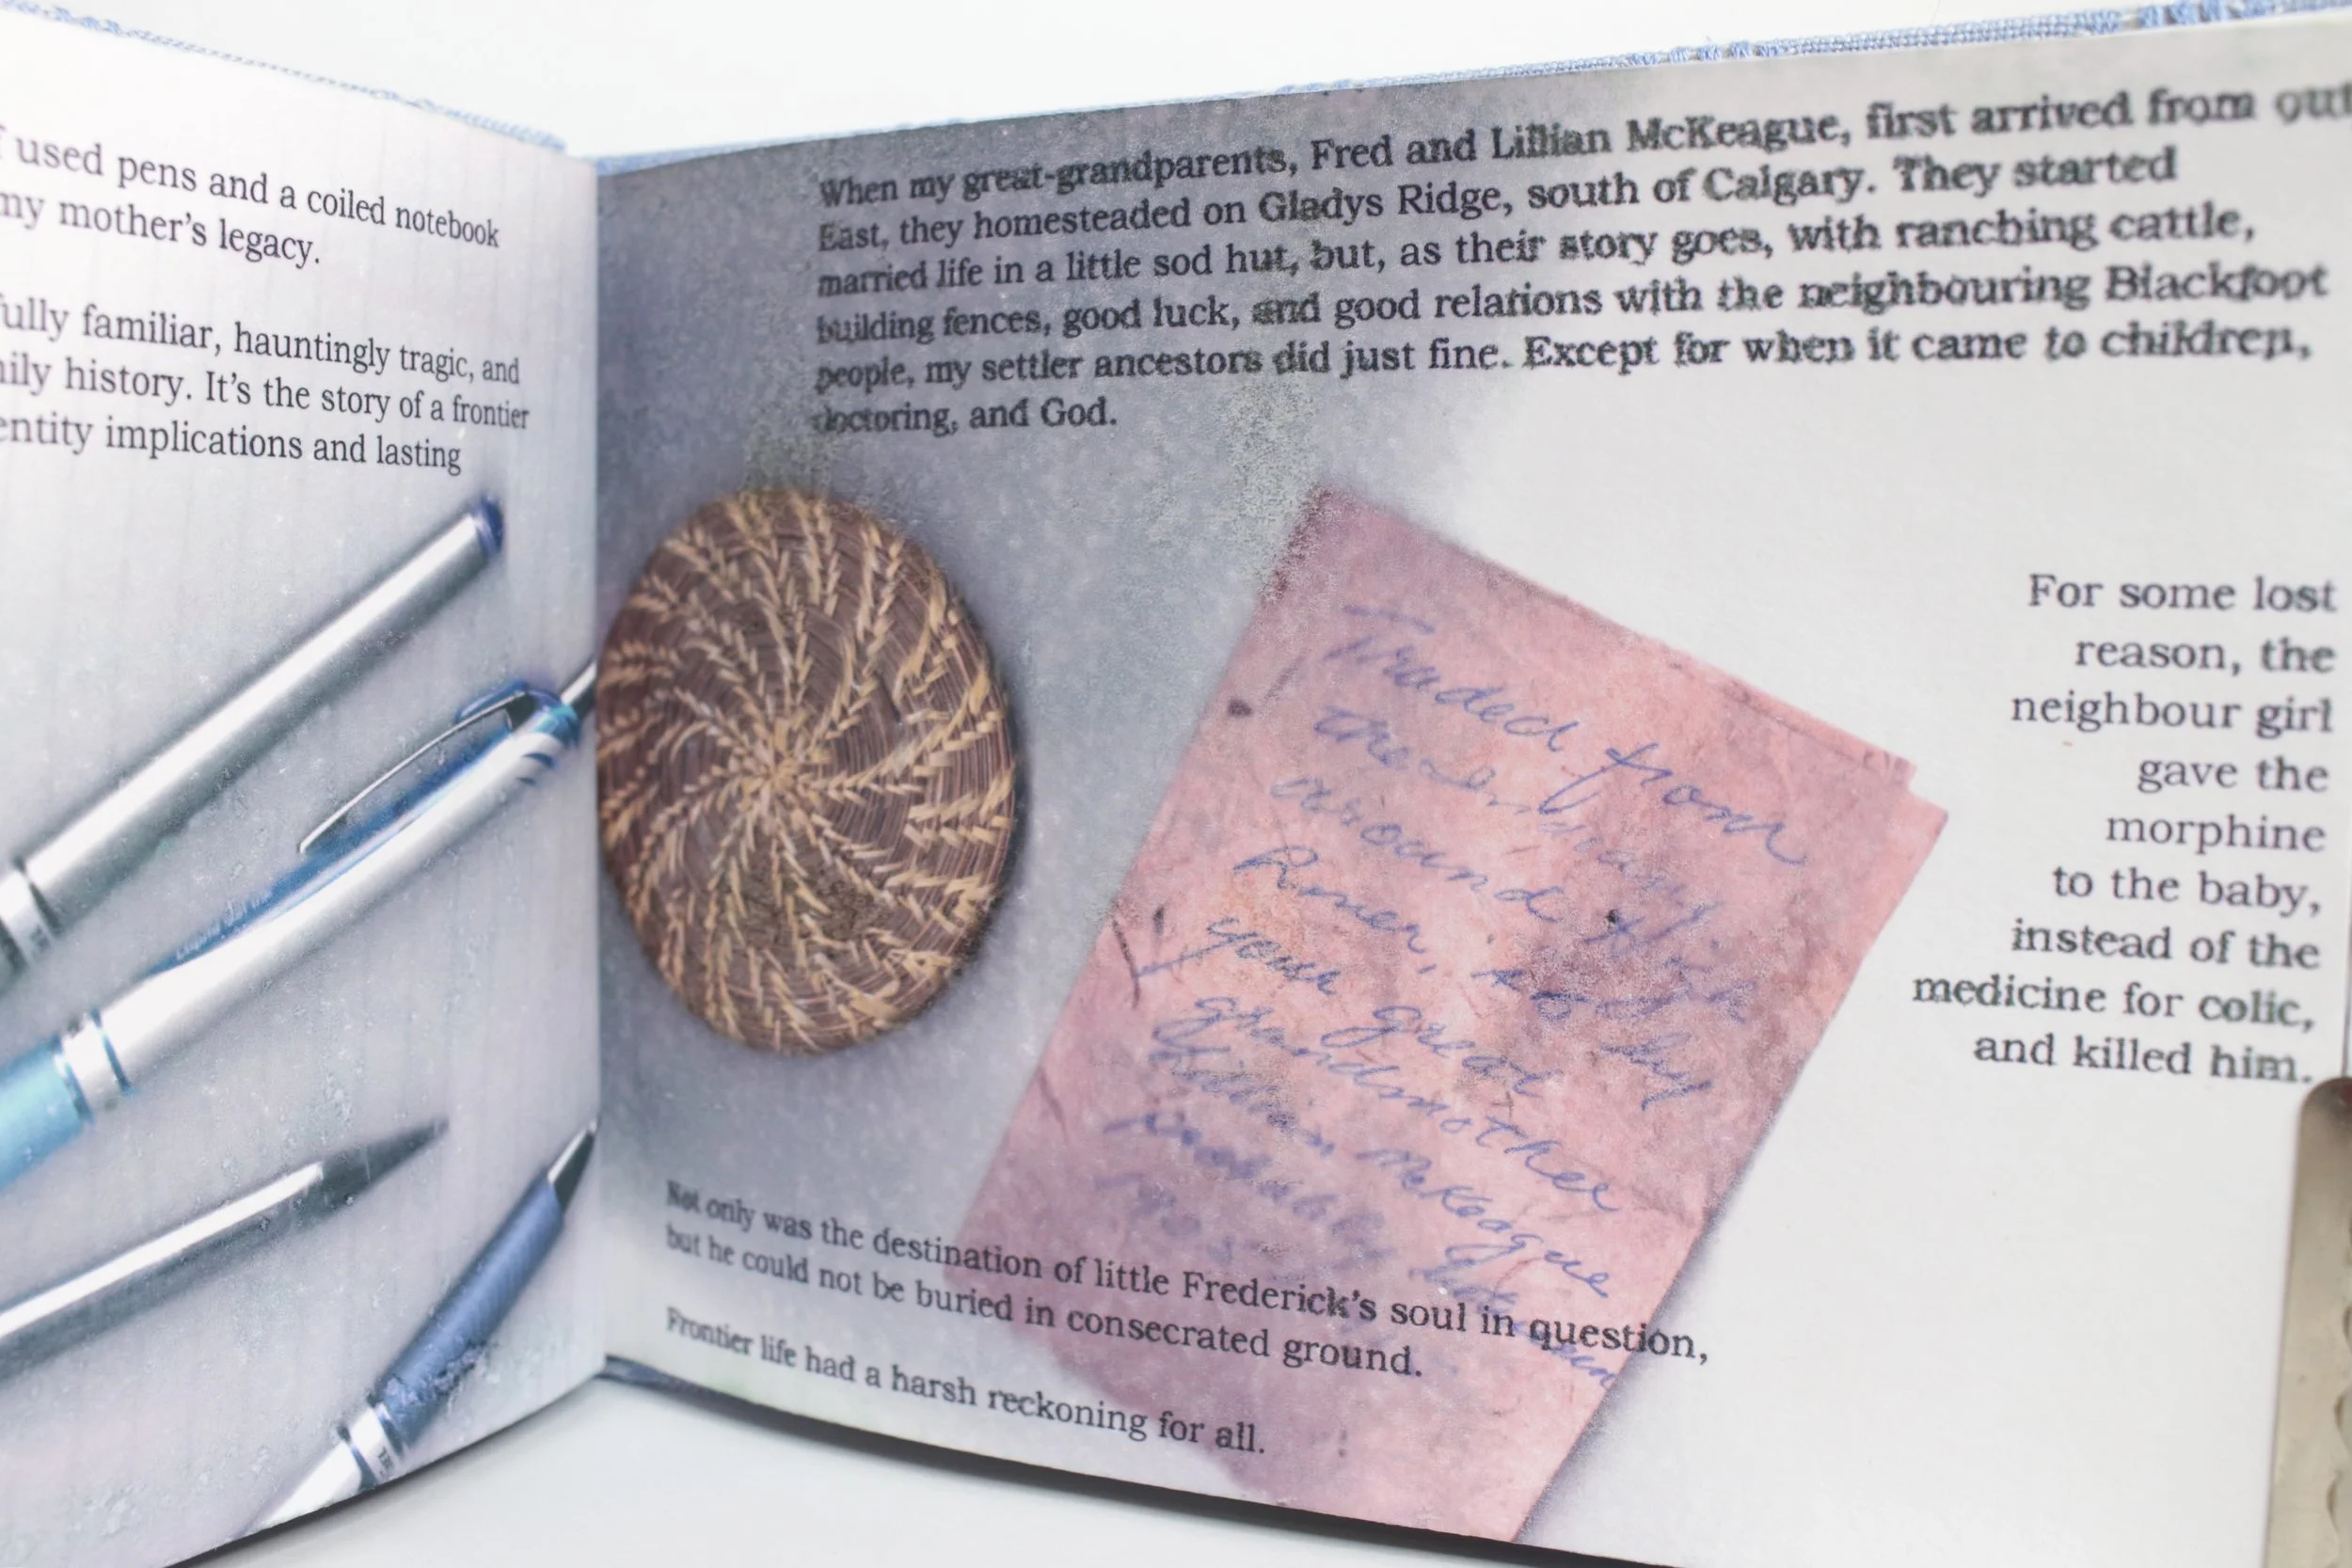 used pens and a coiled notebook
my mother's legacy.
fully familiar, hauntingly tragic, and
history. It's the story of a frontier
implications and lasting
When my great-grandparents, Fred and Lillian McKeague, first arrived from out
East, they homesteaded on Gladys Ridge, south of Calgary. They started
married life in a little sod hut, but, as their story goes, with ranching cattle,
building fences, good luck, and good relations with the neighbouring Blackfoot
people, my settler ancestors did just fine. Except for when it came to children,
doctoring, and God.
For some lost
reason, the
neighbour girl
gave the
morphine
to the baby,
instead of the
medicine for colic,
and killed him.
Traded from
the
around High
River, to by
your great
grandmother
Lillian McKeague
probably
Not only was the destination of little Frederick's soul in question,
but he could not be buried in consecrated ground.
Frontier life had a harsh reckoning for all.